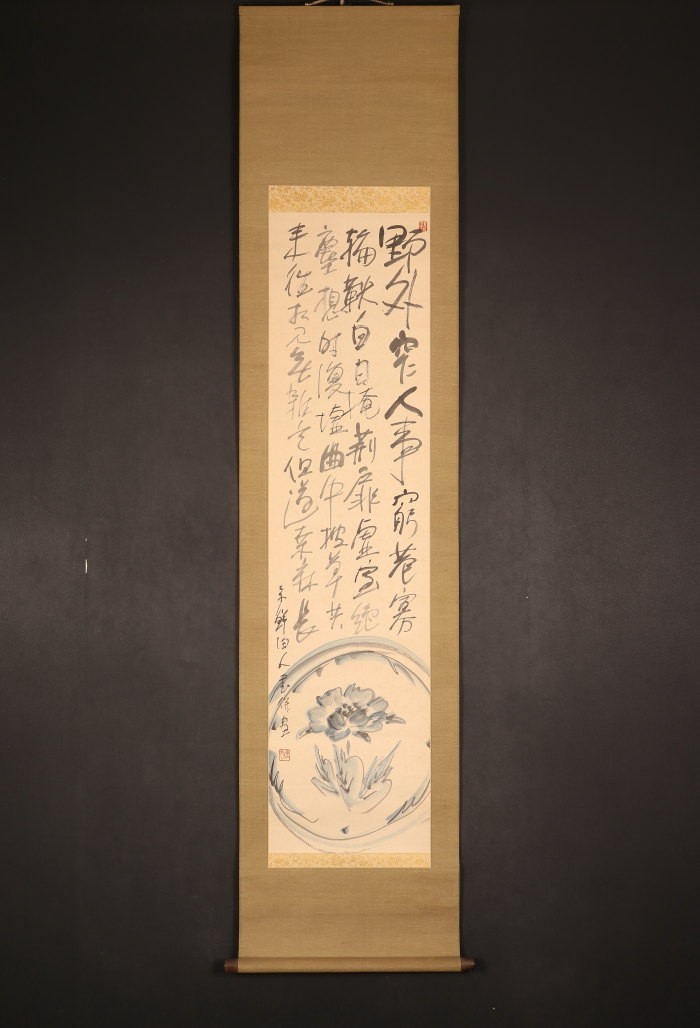 野外罕人事窮巷寡
輪鞅白日掩荊扉虛室絶
塵想時復墟曲中披草共
来往相見無雜言但道桑麻長
人